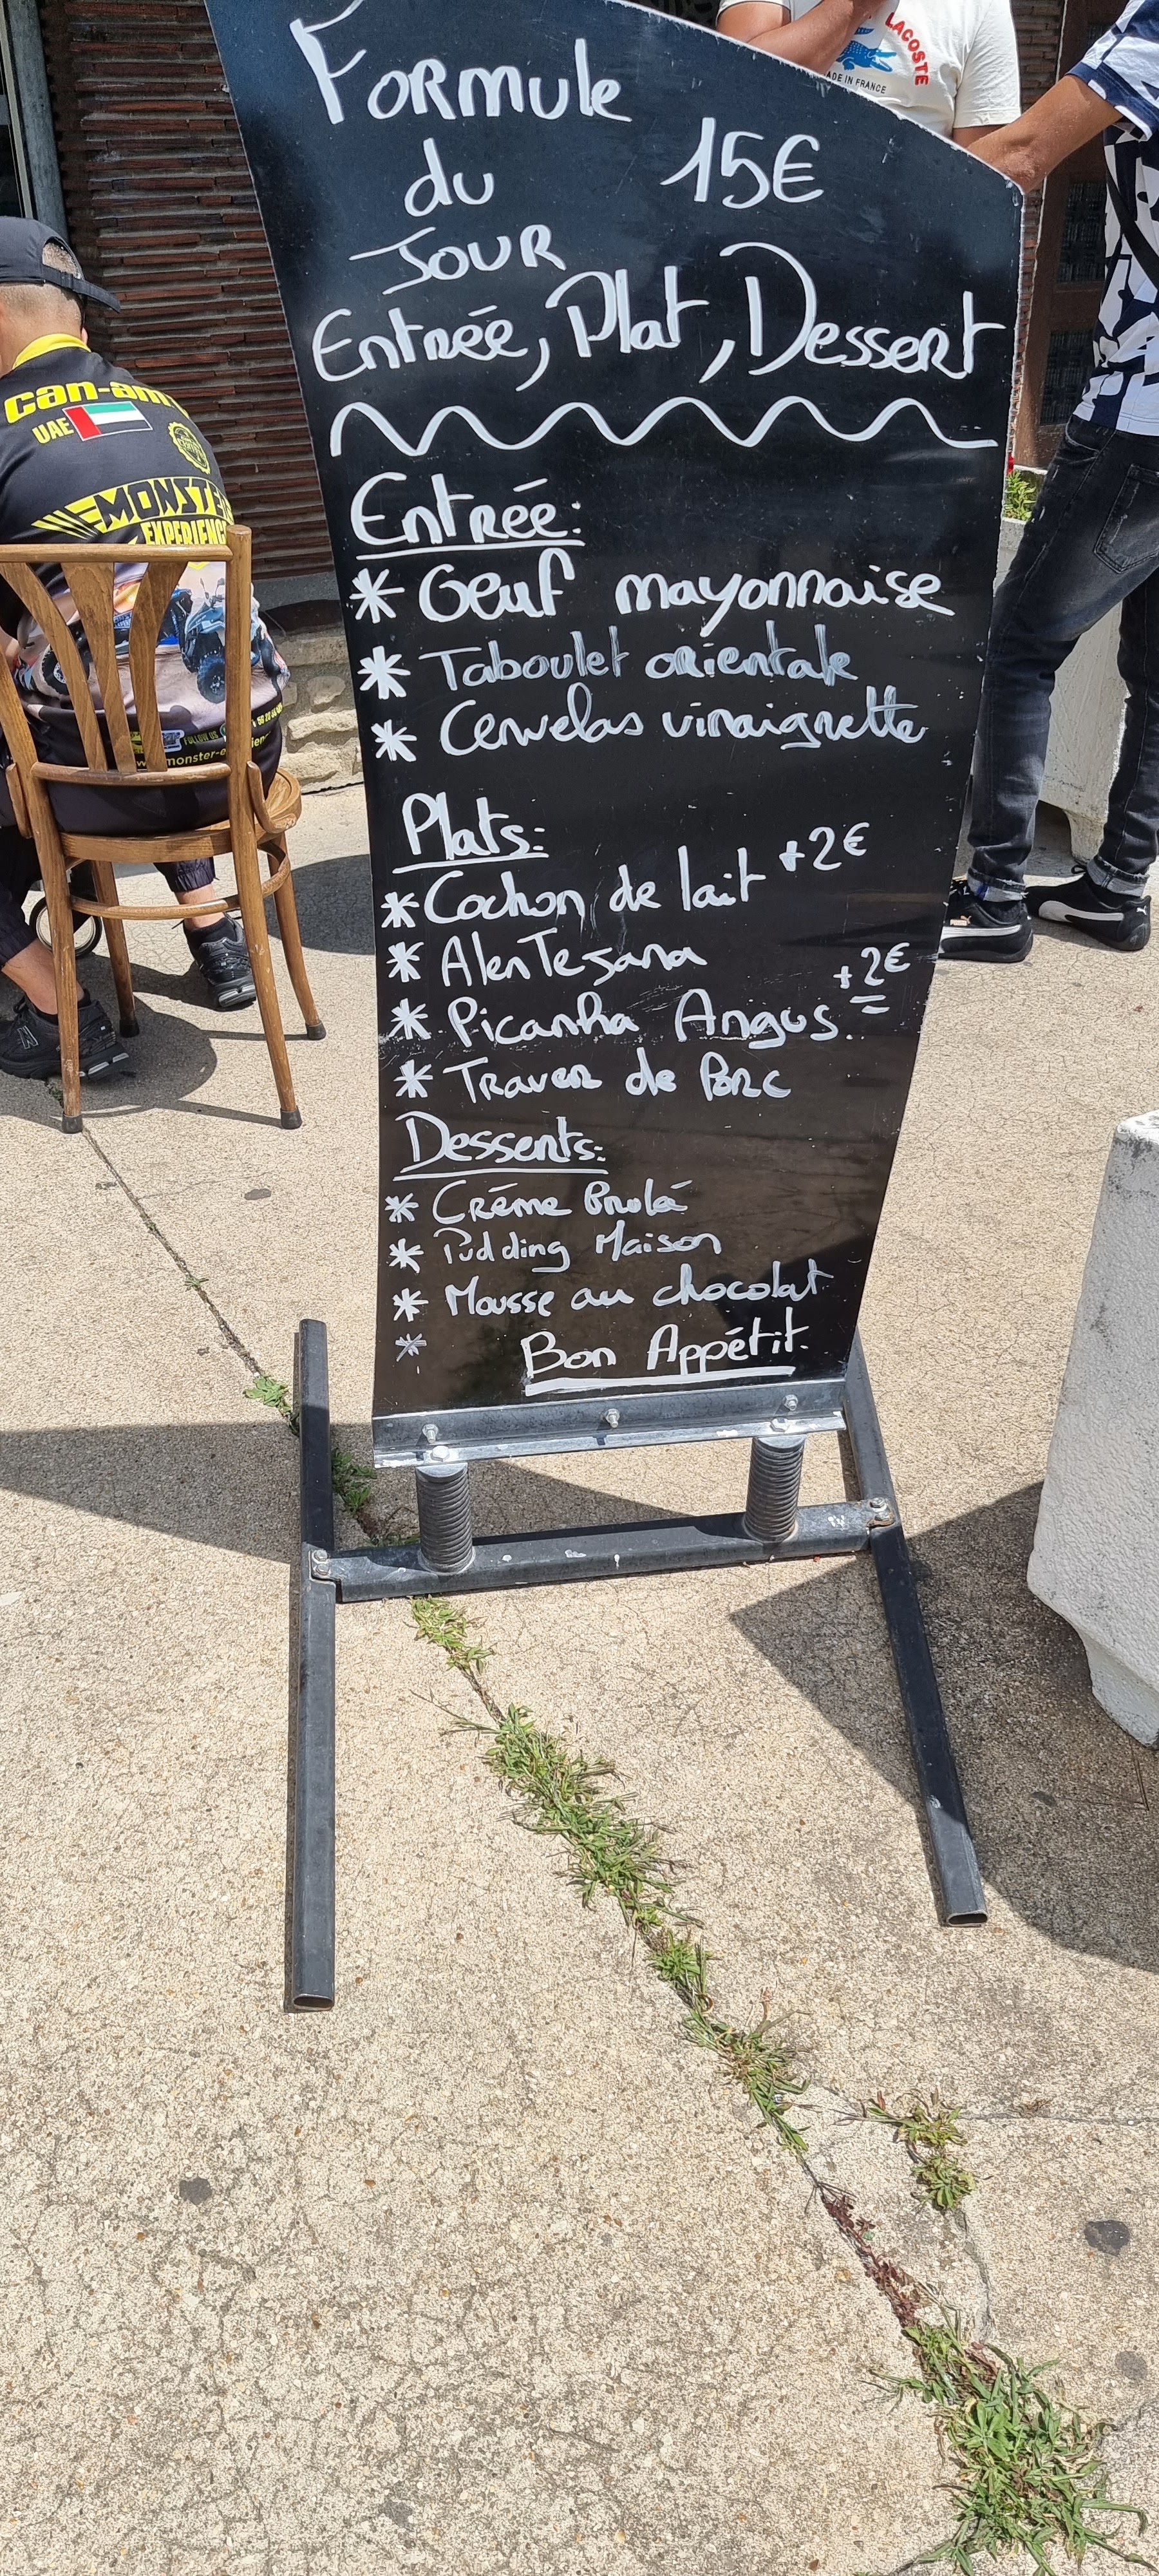 Formule
du 15€
Jour
Entrée, Plat, Dessert
Entrée:
* Oeuf mayonnaise
* Taboulet orientale
* Cervelas vinaigrette
Plats:
* Cochon de lait +2€
* Alentejana
* Picanha Angus. +2€
* Traver de Porc
Desserts:
* Créme Brulé
* Pudding Maison
* Mousse au chocolat
*
Bon Appétit.
LACOSTE
MADE IN FRANCE
can-am
UAE
MONSTER
EXPERIENCE
FOLLOW US